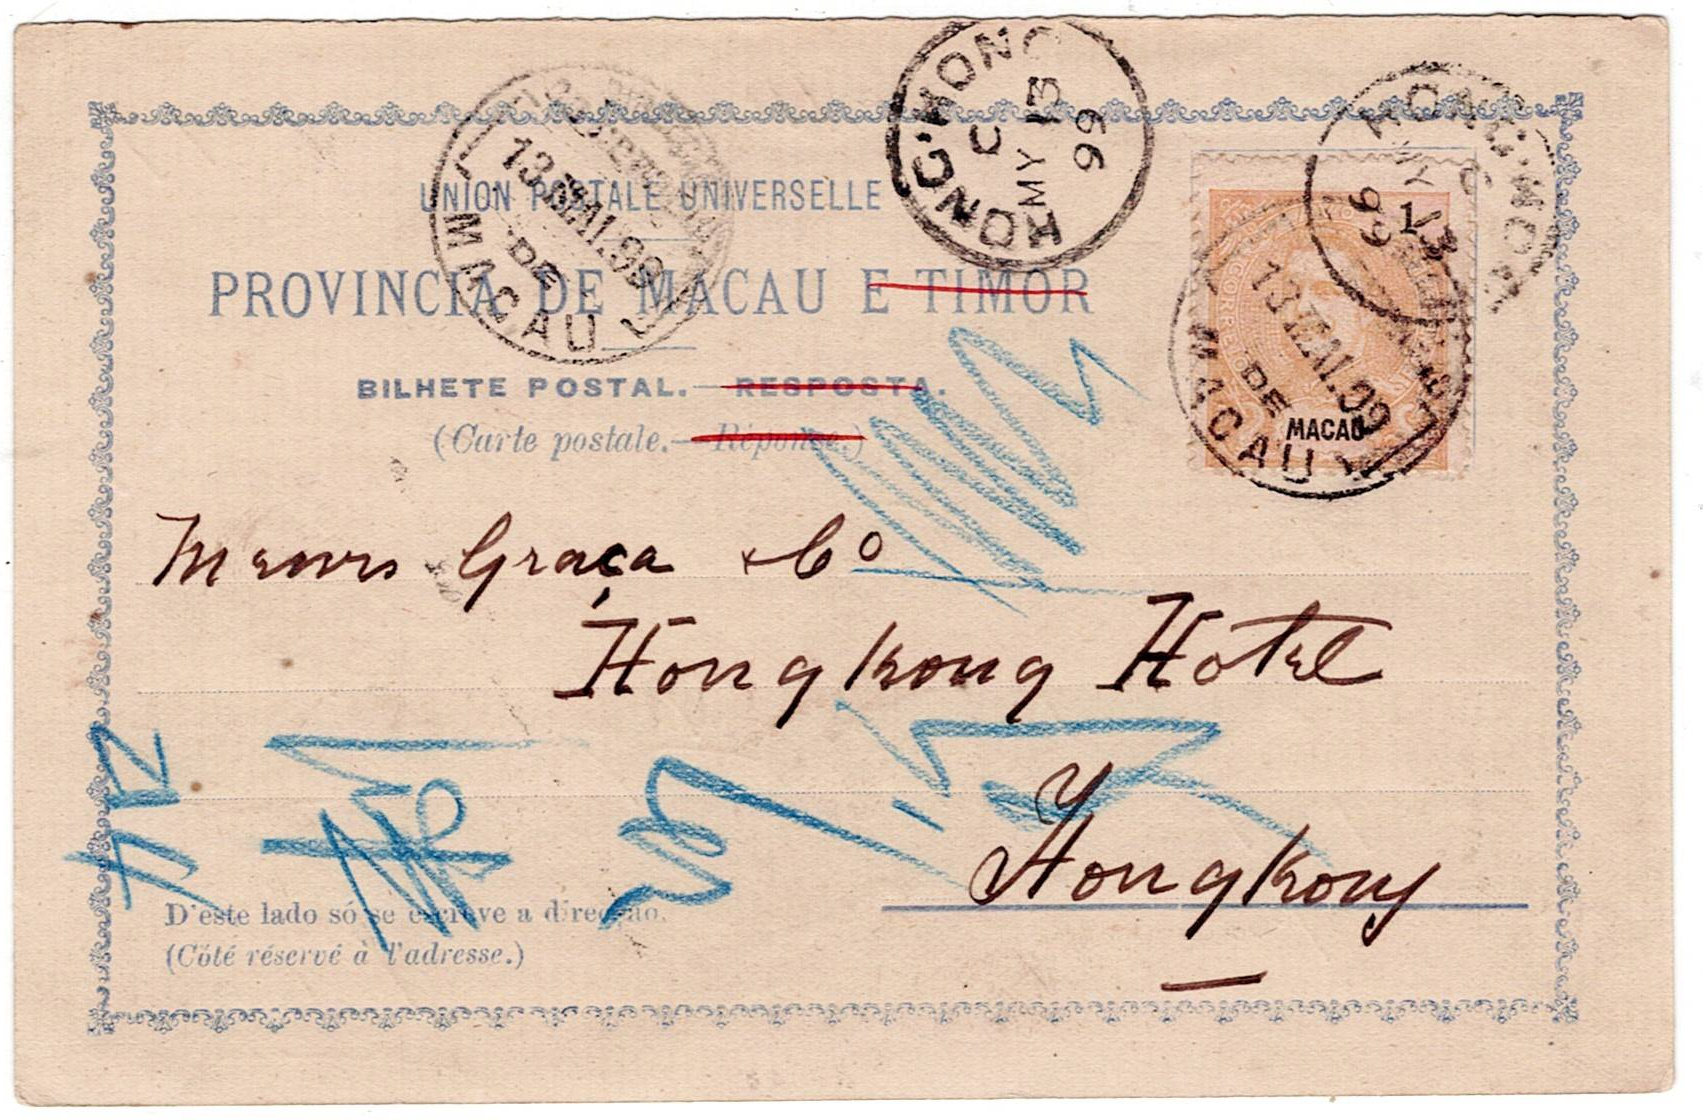 UNION POSTALE UNIVERSELLE
PROVINCIA DE MACAU E TIMOR
BILHETE POSTAL. — RESPOSTA.
(Carte postale. — Réponse.)
13 MAI. 99
DE
MACAU
HONG·KONG
C
MY 13
99
HONG·KONG
C
MY 13
99
13 MAI. 99
DE
MACAU
MACAU
Messrs Graça & Co
Hongkong Hotel
Hongkong
D'este lado só se escreve a direcção.
(Côté réservé à l'adresse.)